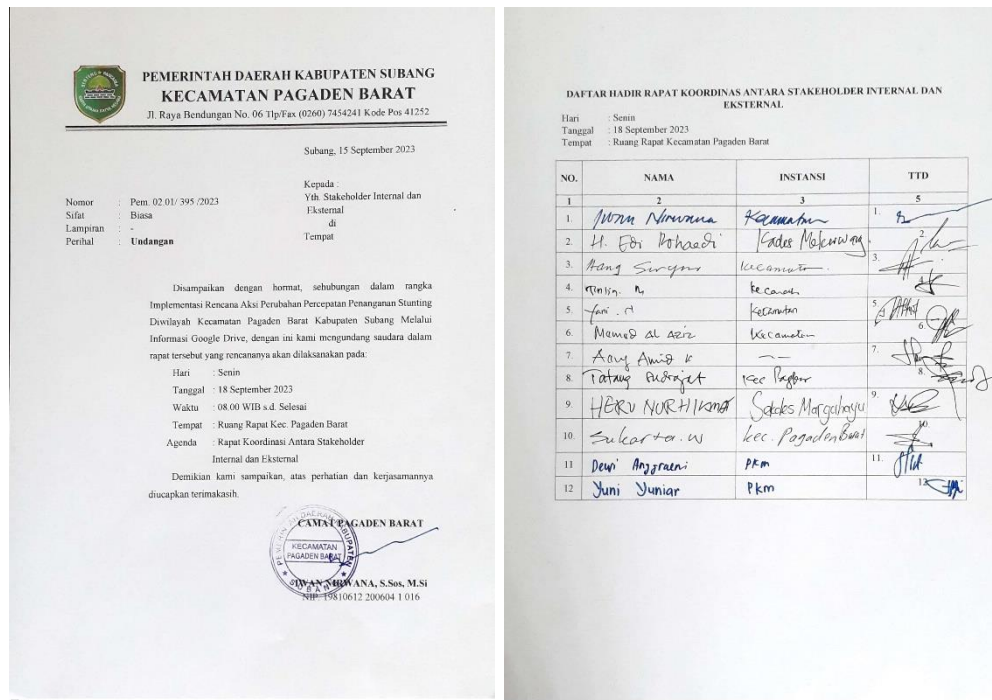 PEMERINTAH DAERAH KABUPATEN SUBANG
KECAMATAN PAGADEN BARAT
Jl. Raya Bendungan No. 06 Tlp/Fax (0260) 7454241 Kode Pos 41252
Subang, 15 September 2023
Kepada :
Yth. Stakeholder Internal dan
Eksternal
di
Tempat
Nomor : Pem. 02.01/ 395 /2023
Sifat : Biasa
Lampiran : -
Perihal : Undangan
Disampaikan dengan hormat, sehubungan dalam rangka
Implementasi Rencana Aksi Perubahan Percepatan Penanganan Stunting
Diwilayah Kecamatan Pagaden Barat Kabupaten Subang Melalui
Informasi Google Drive, dengan ini kami mengundang saudara dalam
rapat tersebut yang rencananya akan dilaksanakan pada:
Hari : Senin
Tanggal : 18 September 2023
Waktu : 08.00 WIB s.d. Selesai
Tempat : Ruang Rapat Kec. Pagaden Barat
Agenda : Rapat Koordinasi Antara Stakeholder
Internal dan Eksternal
Demikian kami sampaikan, atas perhatian dan kerjasamannya
diucapkan terimakasih.
CAMAT PAGADEN BARAT
KECAMATAN
PAGADEN BARAT
SUBANG
IWAN NIRWANA, S.Sos, M.Si
NIP. 19810612 200604 1 016
DAFTAR HADIR RAPAT KOORDINAS ANTARA STAKEHOLDER INTERNAL DAN
EKSTERNAL
Hari : Senin
Tanggal : 18 September 2023
Tempat : Ruang Rapat Kecamatan Pagaden Barat
NO. NAMA INSTANSI TTD
1 2 3 5
1. Iwan Nirwana Kecamatan 1.
2. H. Edi Rohaedi Kades Mekarwangi 2.
3. Kecamatan 3.
4. Kecamatan 4.
5. Kecamatan 5.
6. Mamad Al Aziz Kecamatan 6.
7. Aang 7.
8. Tatang Sudrajat Kec 8.
9. HERU NURHIKMAT Sekdes Margahayu 9.
10. Sukarta. W Kec. Pagaden Barat 10.
11 Dewi Anggraeni PKM 11.
12 Yuni Yuniar PKM 12